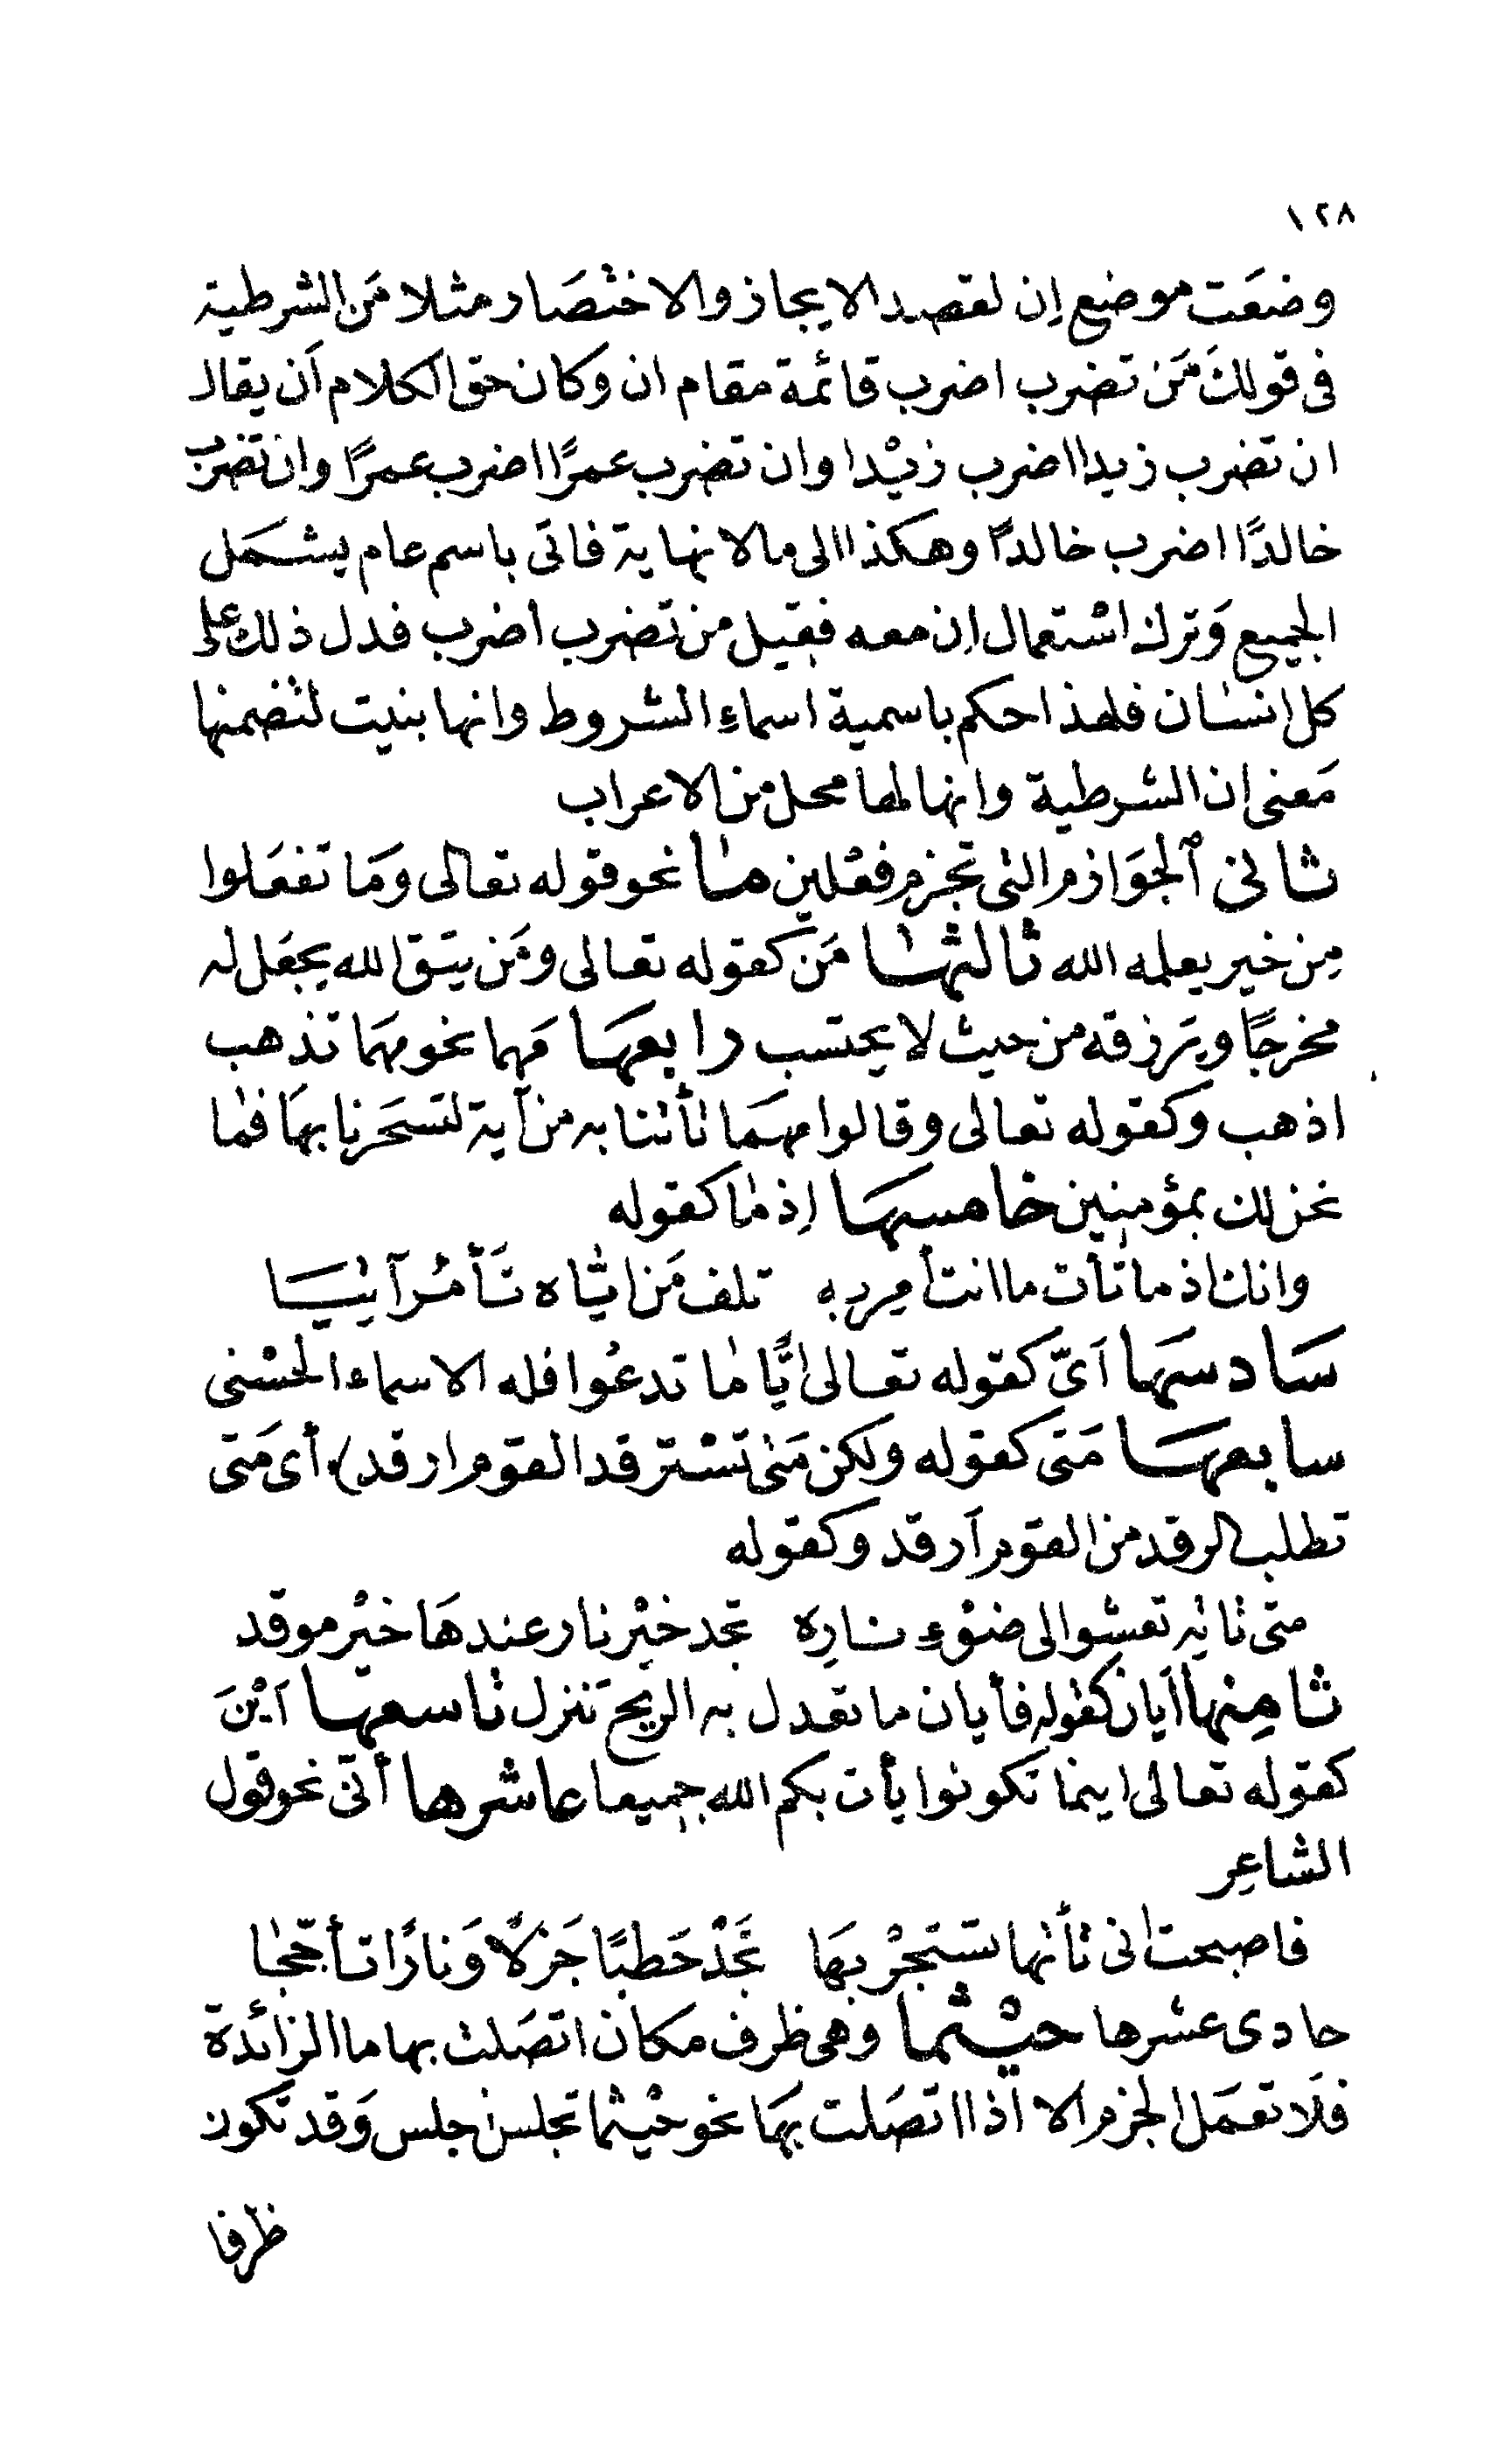 ١٢٨
وضعَت موضع اِن لقصد الايجاز والاختصَار مثلا مَن الشرطية
فى قولك مَن تضرب اضرب قائمة مقام ان وكان حق الكلام اَن يقال
ان تضرب زيدا اضرب زيْدا وان تضرب عمرًا اضرب عمرًا وان تضرب
خالدًا اضرب خالدًا وهكذا الى مالا نهاية فاتى باسم عام يشمَل
الجميع وَترك اسْتعمال اِن معه فقيل من تضرب اضرب فدل ذلك على
كل انسان فلهذا حكم باسمية اسماءِ الشروط وانها بنيت لتضمنها
مَعنى ان الشرطية وانها لها محل من الاعراب
ثانى الجوَازم التى تجزم فعْلين مـا نحو قوله تعالى وَما تفعَلوا
مِن خير يعلمه الله ثالثها مَن كقوله تعالى ومَن يتق الله يجعَل له
مخرجًا ويَرزقه من حيث لا يحتسب رابعهَا مَهما نحو مهمَا تذهب
اذهب وكقوله تعالى وقالوا مهمَا تأتنا به من آية لتسحَرنا بهَا فما
نحن لك بمؤمنين خامسهَا اِذ ما كقوله
وانك اذ ما تأت ما انت أمِر به تلف مَن ايّاه تَأمُر آتِيَا
سَادسهَا اَىّ كقوله تعالى ايًّا ما تدعُوا فله الاسماء الحسْنى
سابعهَا مَتى كقوله ولكن مَتى تسْترقد القوم ارقد) أى مَتى
تطلب الرقد من القوم اَرقد وكقوله
متى تاتِه تعشوا لى ضوْءِ نارِه تجد خيْر نار عندهَا خيْر موقد
ثامِنها اَيان كقوله فأيان ما تعدل به الريح تَنزل تاسعها اَيْنَ
كقوله تعالى اينما تَكونوا يأت بكم الله جميعا عاشرها أنّى نحو قول
الشاعِر
فاصبحت انى تأتها تستجرْ بهَا تجَدْ حَطبًا جَزلًا وَنارًا تأجّجا
حادى عشرها حيْثما وهى ظرف مكان اتصَلت بها ما الزائدة
فلَا تعمَل الجزم الا اذا اتصَلت بهَا نحو حيْثما تجلس اجلس وَقد تَكون
ظرفا